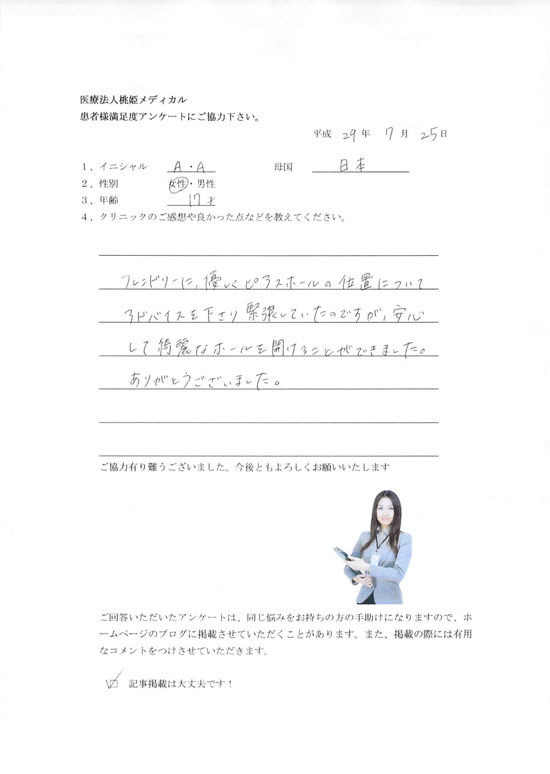 医療法人桃姫メディカル
患者様満足度アンケートにご協力下さい。
平成 29 年 7 月 25 日
1、イニシャル A・A 母国 日本
2、性別 女性・男性
3、年齢 17才
4、クリニックのご感想や良かった点などを教えてください。
フレンドリーに、優しくピアスホールの位置について
アドバイスを下さり緊張していたのですが、安心
して綺麗なホールを開けることができました。
ありがとうございました。
ご協力有り難うございました。今後ともよろしくお願いいたします
ご回答いただいたアンケートは、同じ悩みをお持ちの方の手助けになりますので、ホ
ームページのブログに掲載させていただくことがあります。また、掲載の際には有用
なコメントをつけさせていただきます。
記事掲載は大丈夫です！